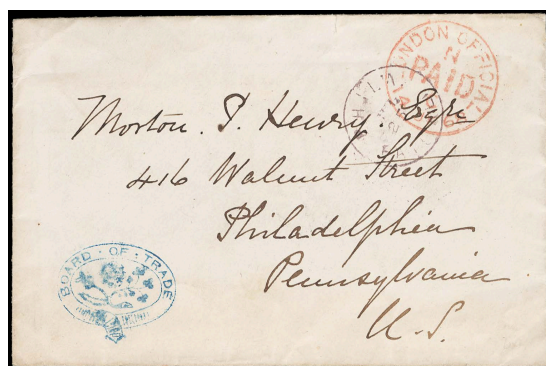 LONDON OFFICIAL
N
PAID
Morton. P. Henry Esqre
416 Walnut Street
Philadelphia
Pennsylvania
U.S.
BOARD · OF · TRADE